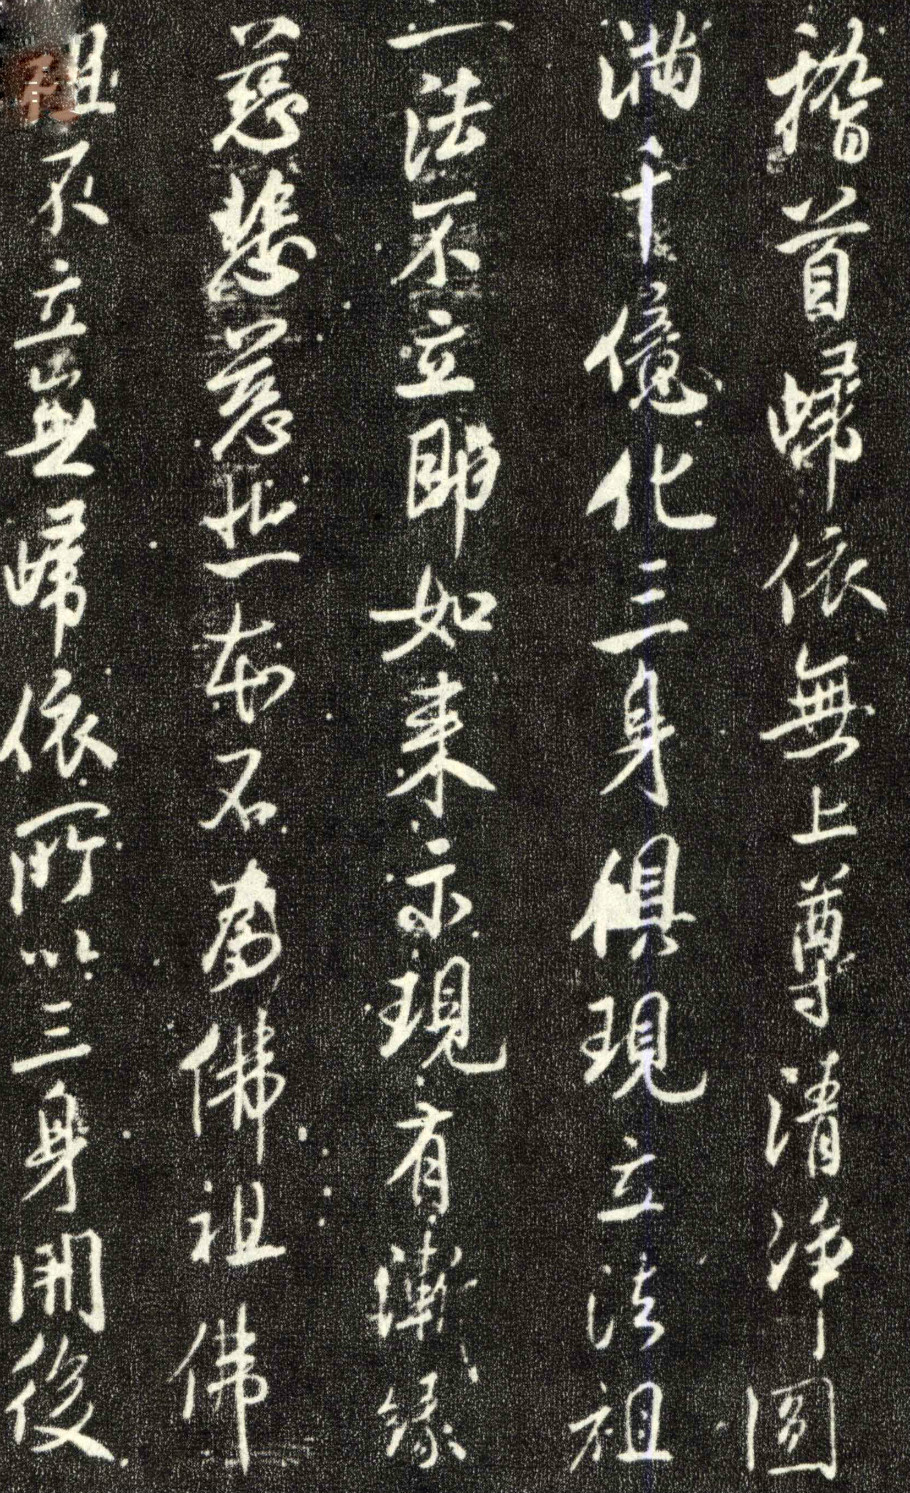 稽首歸依無上尊清淨圓
滿千億化三身俱現立法祖
一法不立即如来示現有漸緣
慈愍善哉一本石為佛祖佛
祖不立無歸依所以三身開後